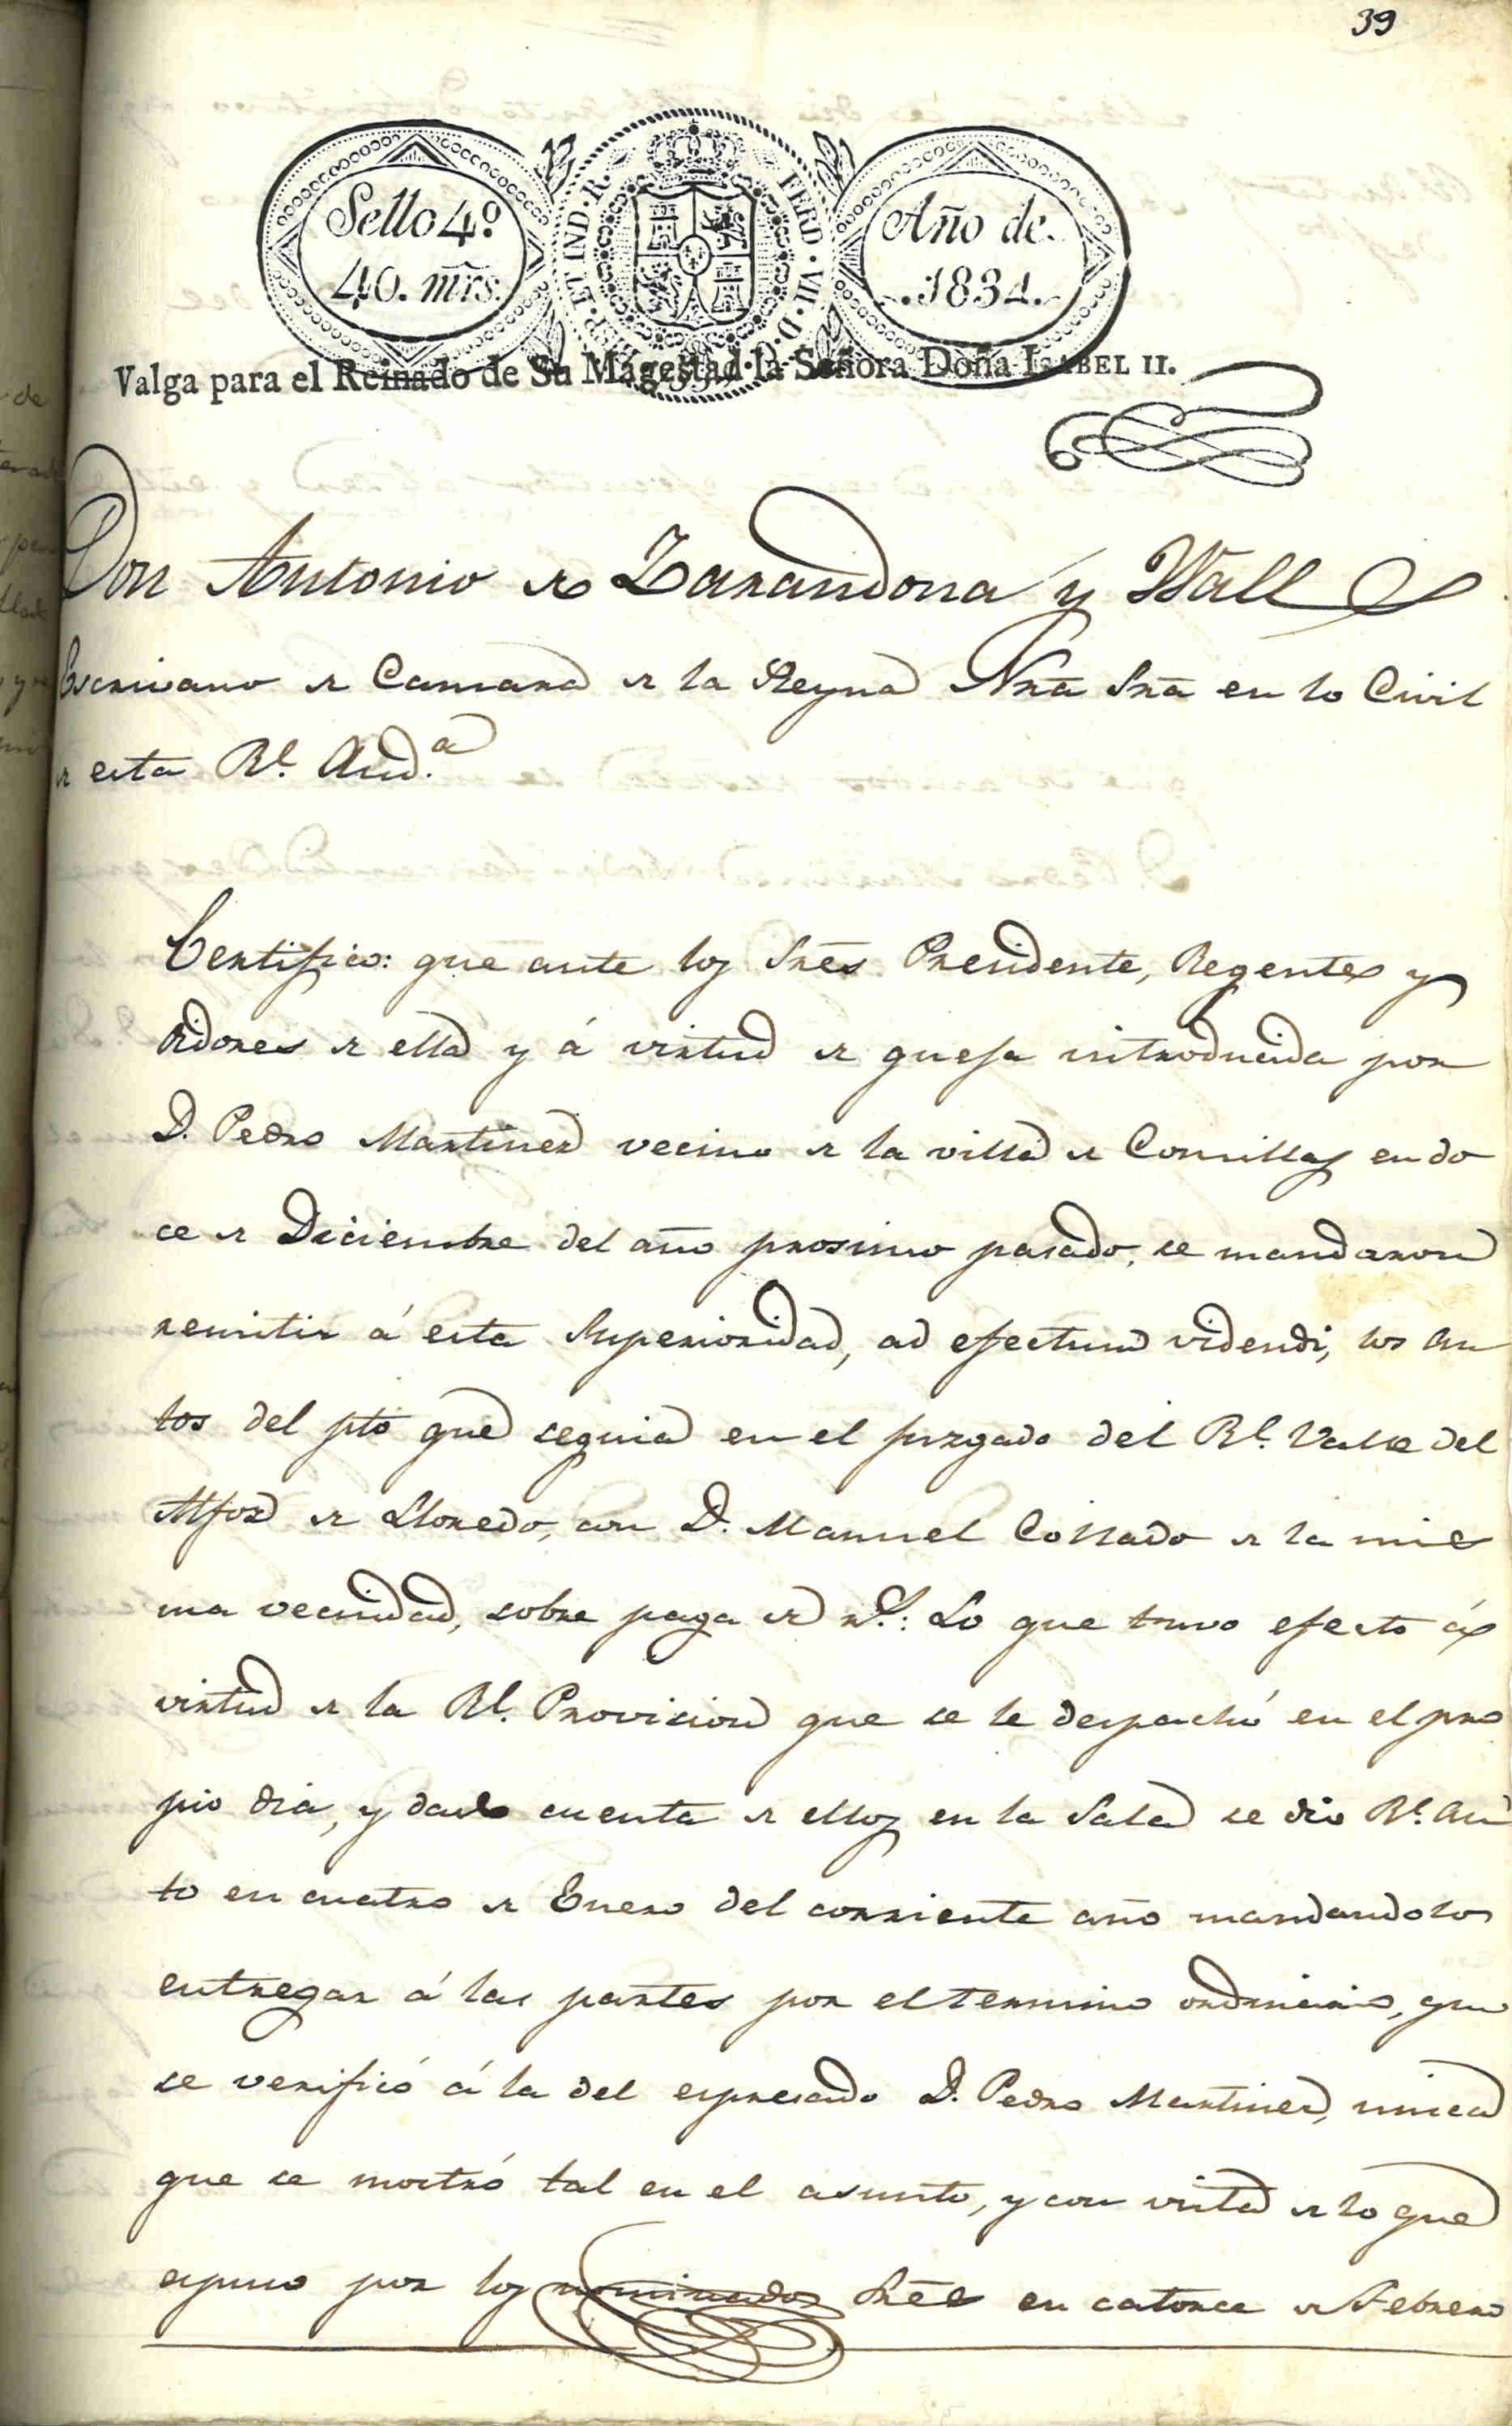 39
Sello 4º
40. mrs.
SP. ET IND. R.
FERD. VII. D.
Año de
1834.
Valga para el Reinado de Su Magestad la Señora Doña ISABEL II.
Don Antonio de Zarandona y Wall
Escrivano de Camara de la Reyna Nra Sra en lo Civil
de esta Rl. Aud.a
Certifico: que ante los Sres Presidente, Regente y
Oidores de ella y á virtud de quefa introducida por
D. Pedro Martinez vecino de la villa de Comillas en do
ce de Diciembre del año prosimo pasado, se mandaron
remitir á esta Superioridad, ad efectum videndi, los Au
tos del pto que seguia en el juzgado del Rl. Valle del
Alfoz de Lloredo, con D. Manuel Collado de la mis
ma vecindad, sobre paga de rs.: Lo que tuvo efecto á
virtud de la Rl. Provicion que se le despachó en el pro
pio dia, y dada cuenta de ellos en la Sala se dio Rl. Au
to en cuatro de Enero del corriente año mandandolos
entregar á las partes por el termino ordinario, que
se verificó á la del espresado D. Pedro Martinez, unica
que se mostró tal en el asunto, y con vista de lo que
espuso por los nominados Sres en catorce de Febrero